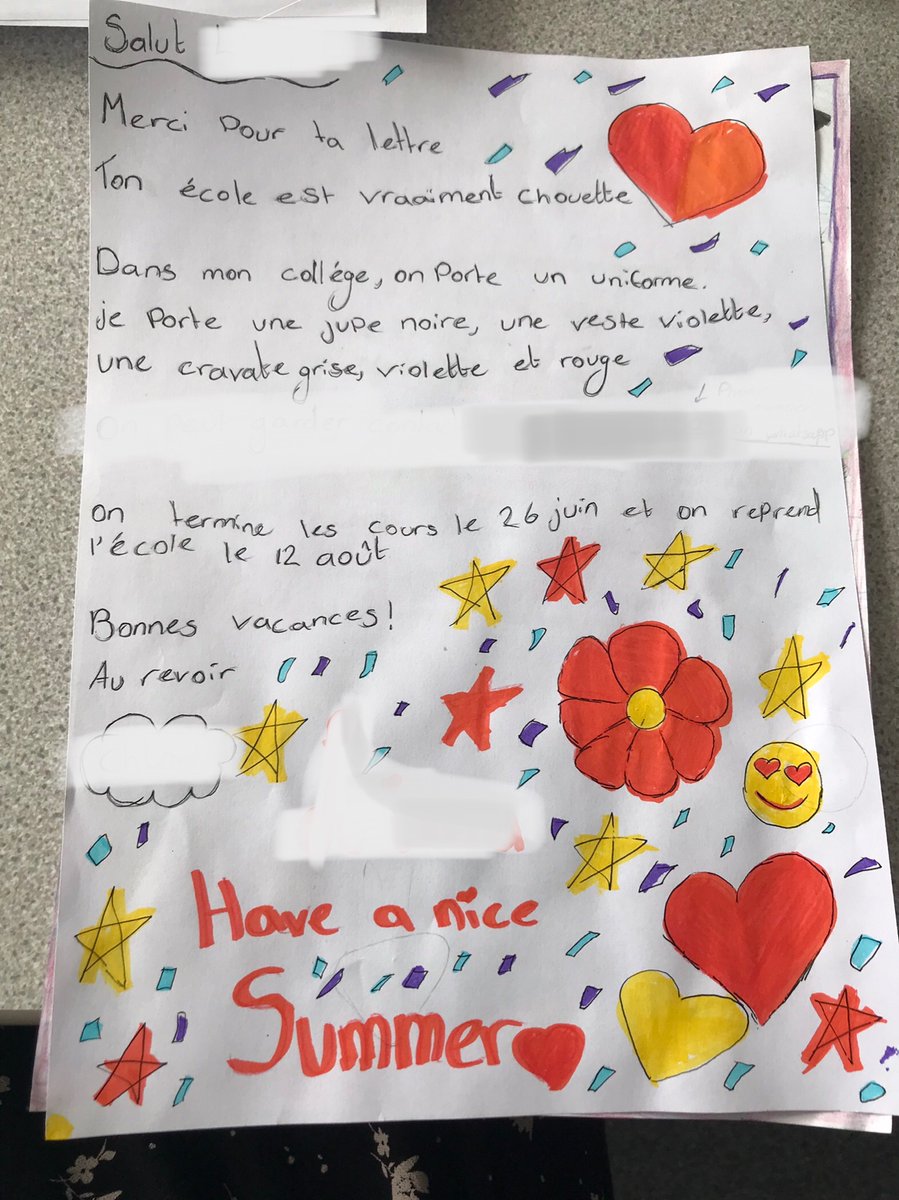 Salut
Merci pour ta lettre
Ton école est vraaiment chouette
Dans mon collége, on porte un uniforme.
je porte une jupe noire, une veste violette,
une cravate grise, violette et rouge
on peur garder
whatsapp
on termine les cours le 26 juin et on reprend
l'école le 12 août
Bonnes vacances!
Au revoir
Have a nice
Summer